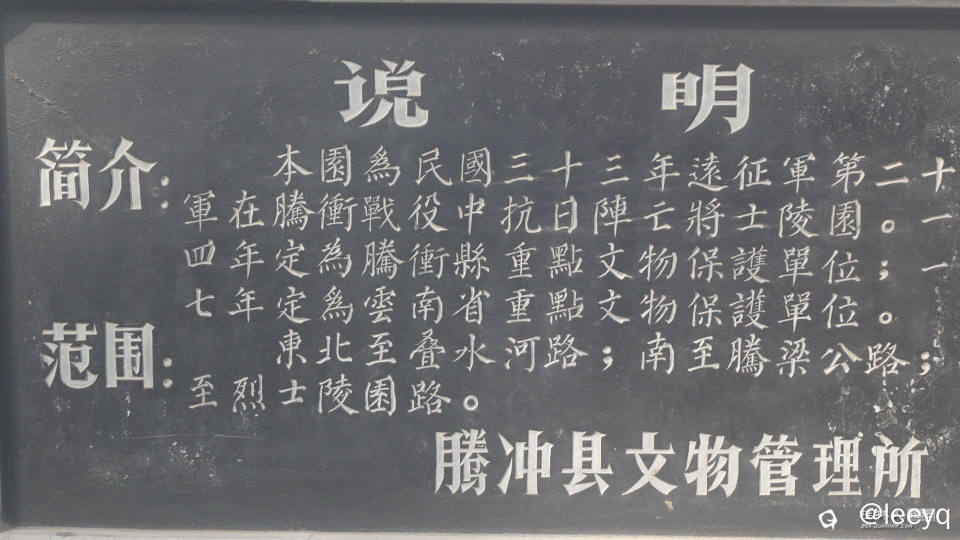 说 明
简介:
本園為民國三十三年遠征軍第二十
軍在騰衝戰役中抗日陣亡將士陵園。一
四年定為騰衝縣重點文物保護單位；一
七年定為雲南省重點文物保護單位。
范围:
東北至叠水河路；南至騰梁公路；
至烈士陵園路。
腾冲县文物管理所
@leeyq